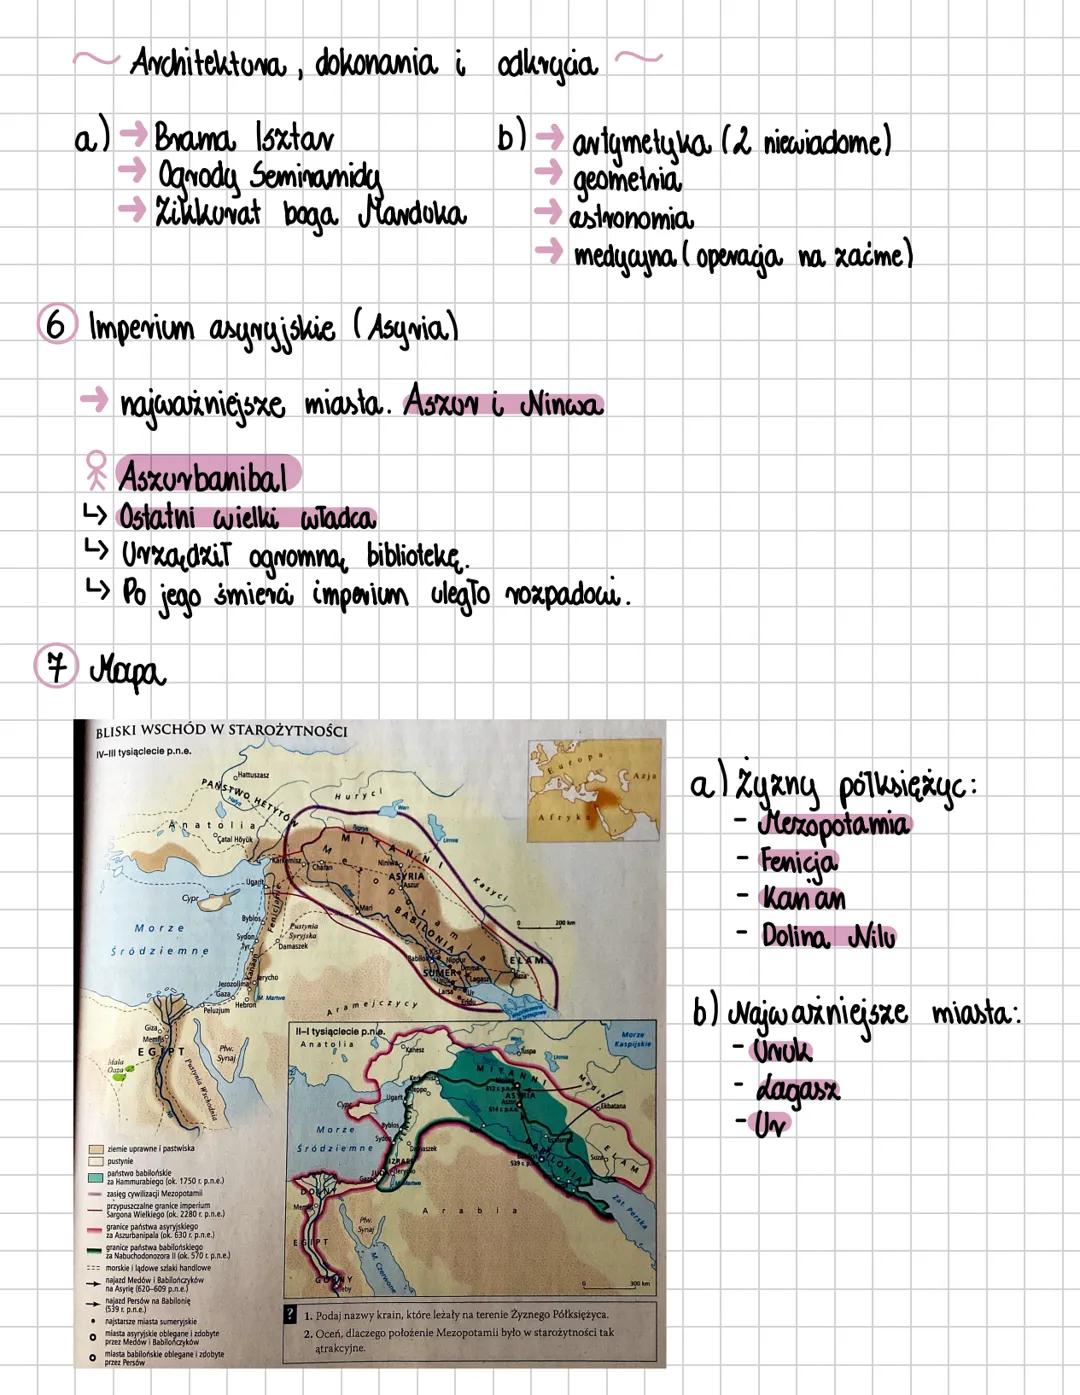 ~ Architektura, dokonania i odkrycia ~
a) → Brama Isztar
→ Ogrody Semiramidy
→ Zikkurat boga Marduka
b) → artymetyka (2 niewiadome)
→ geometria
→ astronomia
→ medycyna (operacja na zaćmę)
6 Imperium asyryjskie (Asyria)
→ najważniejsze miasta. Aszur i Ninwa
Aszurbanibal
↳ Ostatni wielki władca
↳ Urządził ogromną bibliotekę.
↳ Po jego śmierci imperium uległo rozpadowi.
7 Mapa
BLISKI WSCHÓD W STAROŻYTNOŚCI
IV–III tysiąclecie p.n.e.
Hattuszasz
PAŃSTWO HETYTÓW
Huryci
Anatolia
Çatal Höyük
Europa
Azja
Afryka
MITANNI
Mezopotamia
Karkemisz
Charan
Niniwa
ASYRIA
Aszur
Kasyci
Ugarit
Cypr
Mari
BABILONIA
0 200 km
Morze
Śródziemne
Byblos
Fenicjanie
Sydon
Tyr
Pustynia
Syryjska
Damaszek
Babilon
Nippur
ELAM
SUMER
Umma
Lagasz
Suza
Larsa
Ur
Eridu
Kanaan
Jerycho
Jerozolima
Gaza
Hebron
M. Martwe
Peluzjum
Aramejczycy
Giza
Memfis
EGIPT
Mała
Oaza
Płw.
Synaj
Pustynia Wschodnia
Nil
II–I tysiąclecie p.n.e.
Anatolia
Kanesz
Morze
Kaspijskie
MITANNI
Media
612 r. p.n.e.
ASYRIA
Aszur
614 r. p.n.e.
Ekbatana
Ugarit
Cypr
Byblos
Sydon
Morze
Śródziemne
Damaszek
IZRAEL
JUDA
Jerycho
Gaza
M. Martwe
BABILONIA
539 r. p.n.e.
Suza
ELAM
Zat. Perska
DOLNY
Memfis
EGIPT
Płw.
Synaj
M. Czerwone
Arabia
GÓRNY
Teby
0 300 km
ziemie uprawne i pastwiska
pustynie
państwo babilońskie
za Hammurabiego (ok. 1750 r. p.n.e.)
zasięg cywilizacji Mezopotamii
przypuszczalne granice imperium
Sargona Wielkiego (ok. 2280 r. p.n.e.)
granice państwa asyryjskiego
za Aszurbanipala (ok. 630 r. p.n.e.)
granice państwa babilońskiego
za Nabuchodonozora II (ok. 570 r. p.n.e.)
morskie i lądowe szlaki handlowe
najazd Medów i Babilończyków
na Asyrię (620–609 p.n.e.)
najazd Persów na Babilonię
(539 r. p.n.e.)
najstarsze miasta sumeryjskie
miasta asyryjskie oblegane i zdobyte
przez Medów i Babilończyków
miasta babilońskie oblegane i zdobyte
przez Persów
? 1. Podaj nazwy krain, które leżały na terenie Żyznego Półksiężyca.
2. Oceń, dlaczego położenie Mezopotamii było w starożytności tak
atrakcyjne.
a) Żyzny półksiężyc:
- Mezopotamia
- Fenicja
- Kanan
- Dolina Nilu
b) Najważniejsze miasta:
- Uruk
- Lagasz
- Ur